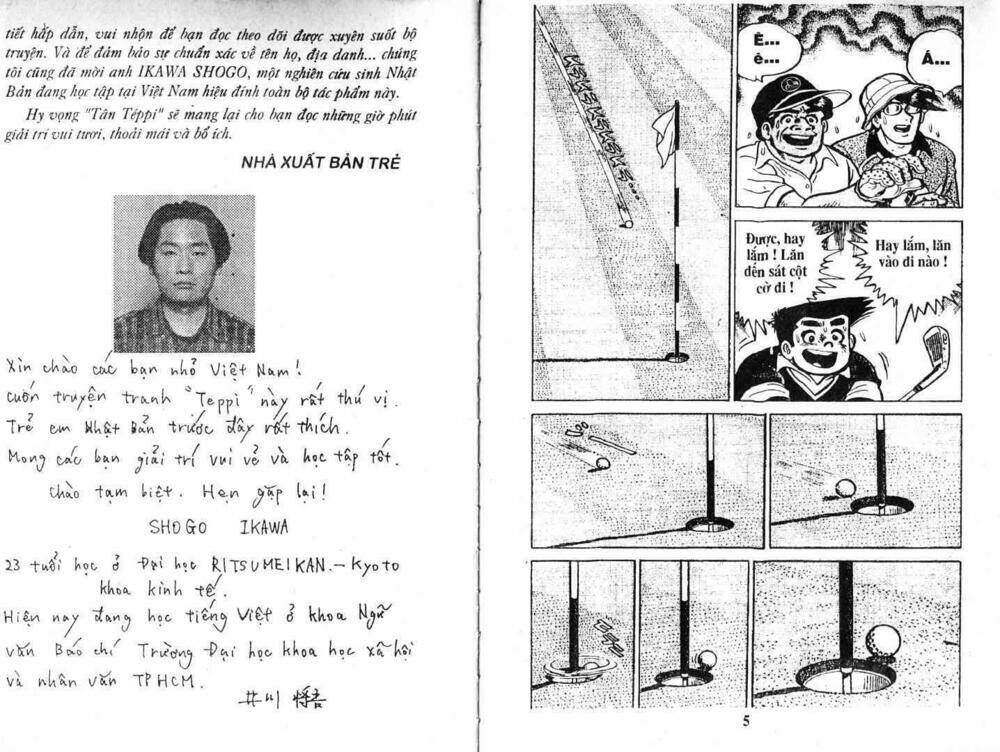 tiết hấp dẫn, vui nhộn để bạn đọc theo dõi được xuyên suốt bộ
truyện. Và để đảm bảo sự chuẩn xác về tên họ, địa danh... chúng
tôi cũng đã mời anh IKAWA SHOGO, một nghiên cứu sinh Nhật
Bản đang học tập tại Việt Nam hiệu đính toàn bộ tác phẩm này.
Hy vọng "Tân Téppi" sẽ mang lại cho bạn đọc những giờ phút
giải trí vui tươi, thoải mái và bổ ích.
NHÀ XUẤT BẢN TRẺ
Xin chào các bạn nhỏ Việt Nam!
Cuốn truyện tranh "Teppi" này rất thú vị.
Trẻ em Nhật Bản trước đây rất thích.
Mong các bạn giải trí vui vẻ và học tập tốt.
Chào tạm biệt. Hẹn gặp lại!
SHOGO IKAWA
23 tuổi học ở Đại học RITSUMEIKAN.–Kyoto
khoa kinh tế.
Hiện nay đang học tiếng Việt ở khoa Ngữ
văn Báo chí Trường Đại học khoa học xã hội
và nhân văn TPHCM.
井川 将吾
Ê...
ê...
Á...
Được, hay
lắm ! Lăn
đến sát cột
cờ đi !
Hay lắm, lăn
vào đi nào !
5